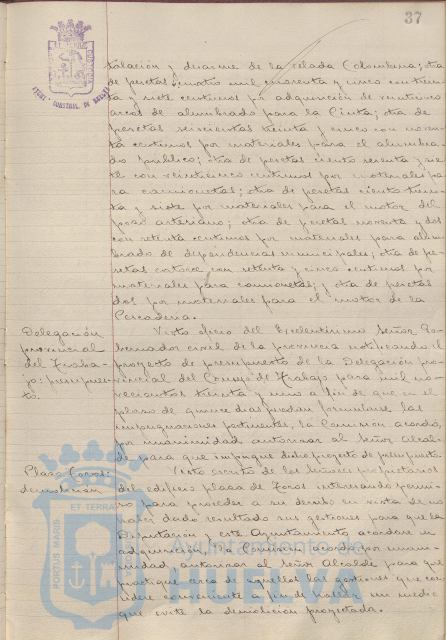 37
talación y desarme de la velada Colombina; otra
de pesetas cuatro mil cuarenta y cinco con trein-
ta y siete centimos por adquisición de veinticinco
arcos de alumbrado para la Cinta; otra de
pesetas seiscientas treinta y cinco con noven-
ta centimos por materiales para el alumbra-
do público; otra de pesetas ciento setenta y sie-
te con veinticinco centimos por materiales pa-
ra camionetas; otra de pesetas ciento trein-
ta y siete por materiales para el motor del
pozo artesiano; otra de pesetas noventa y dos
con setenta centimos por materiales para alum-
brado de dependencias municipales; otra de pe-
setas catorce con setenta y cinco centimos por
materiales para camionetas; y otra de pesetas
dos por materiales para el motor de la
Pescadería.
Delegación
provincial
del Traba-
jo: presupues-
to.
Visto oficio del Excelentísimo Señor Go-
bernador civil de la provincia notificando el
proyecto de presupuesto de la Delegación pro-
vincial del Consejo de Trabajo para mil no-
vecientos treinta y uno a fin de que en el
plazo de quince dias puedan formularse las
impugnaciones pertinentes, la Comisión acordó,
por unanimidad autorizar al Señor Alcal-
de para que impugne dicho proyecto de presupuesto.
Plaza Toros:
demolición
Visto escrito de los Señores propietarios
del edificio plaza de Toros interesando permi-
so para proceder a su derribo en vista de no
haber dado resultado sus gestiones para que la
Diputación y este Ayuntamiento acordare su
adquisición, la Comisión acordó por unani-
midad autorizar al Señor Alcalde para que
practique cerca de aquellos las gestiones que con-
sidere conveniente a fin de hallar un medio
que evite la demolición proyectada.
PORTUS MARIS ET TERRAE
Ayuntamiento de
HUELVA